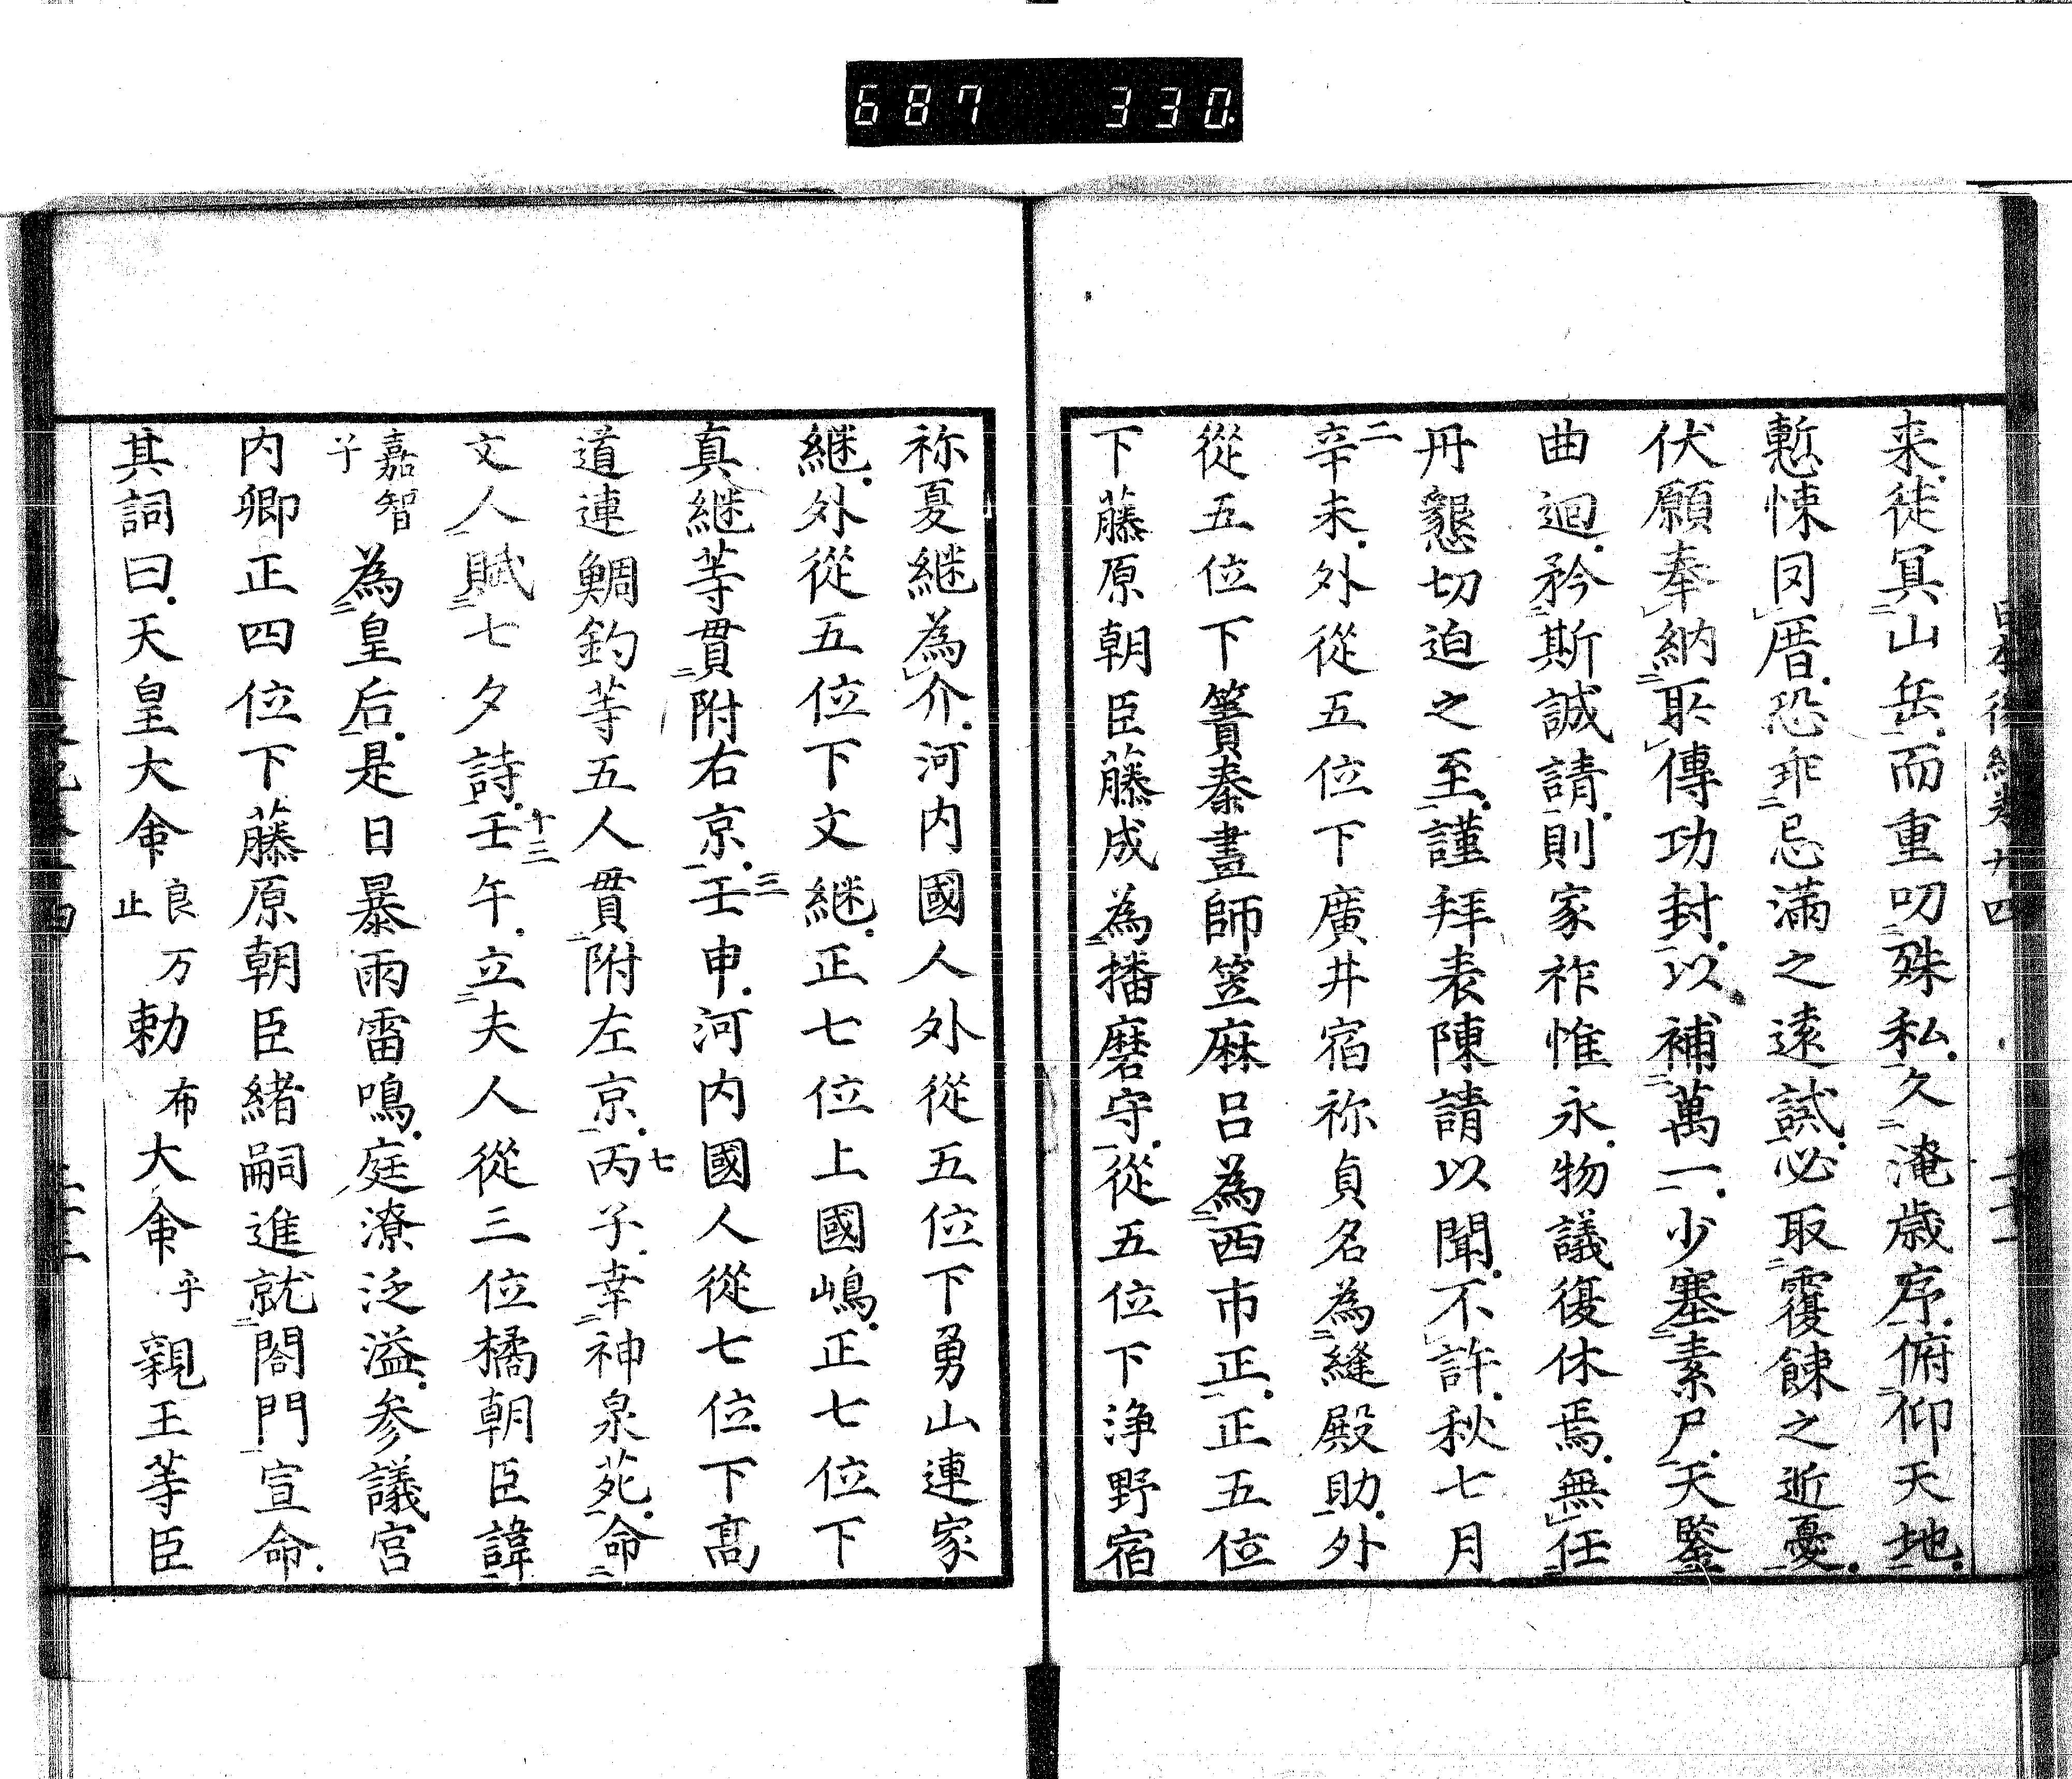 687 330
来徒冥山岳而重叨殊私久淹歳序俯仰天地
慙悚罔厝恐乖忌満之遠誡必取覆餗之近憂
伏願奉納所傳功封以補萬一少塞素尸天鑒
曲迴矜斯誠請則家祚惟永物議復休焉無任
丹懇切迫之至謹拜表陳請以聞不許秋七月
辛未外從五位下廣井宿祢貞名為縫殿助外
二
從五位下簀秦畫師笠麻呂為西市正正五位
下藤原朝臣藤成為播磨守從五位下浄野宿
祢夏継為介河内國人外從五位下勇山連家
継外從五位下文継正七位上國嶋正七位下
真継等貫附右京壬申河内國人從七位下髙
三
道連鯛釣等五人貫附左京丙子幸神泉苑命
七
文人賦七夕詩壬午立夫人從三位橘朝臣諱
十三
嘉智子為皇后是日暴雨雷鳴庭潦泛溢参議宮
内卿正四位下藤原朝臣緒嗣進就閤門宣命
其詞曰天皇大命良万止勅布大命乎親王等臣